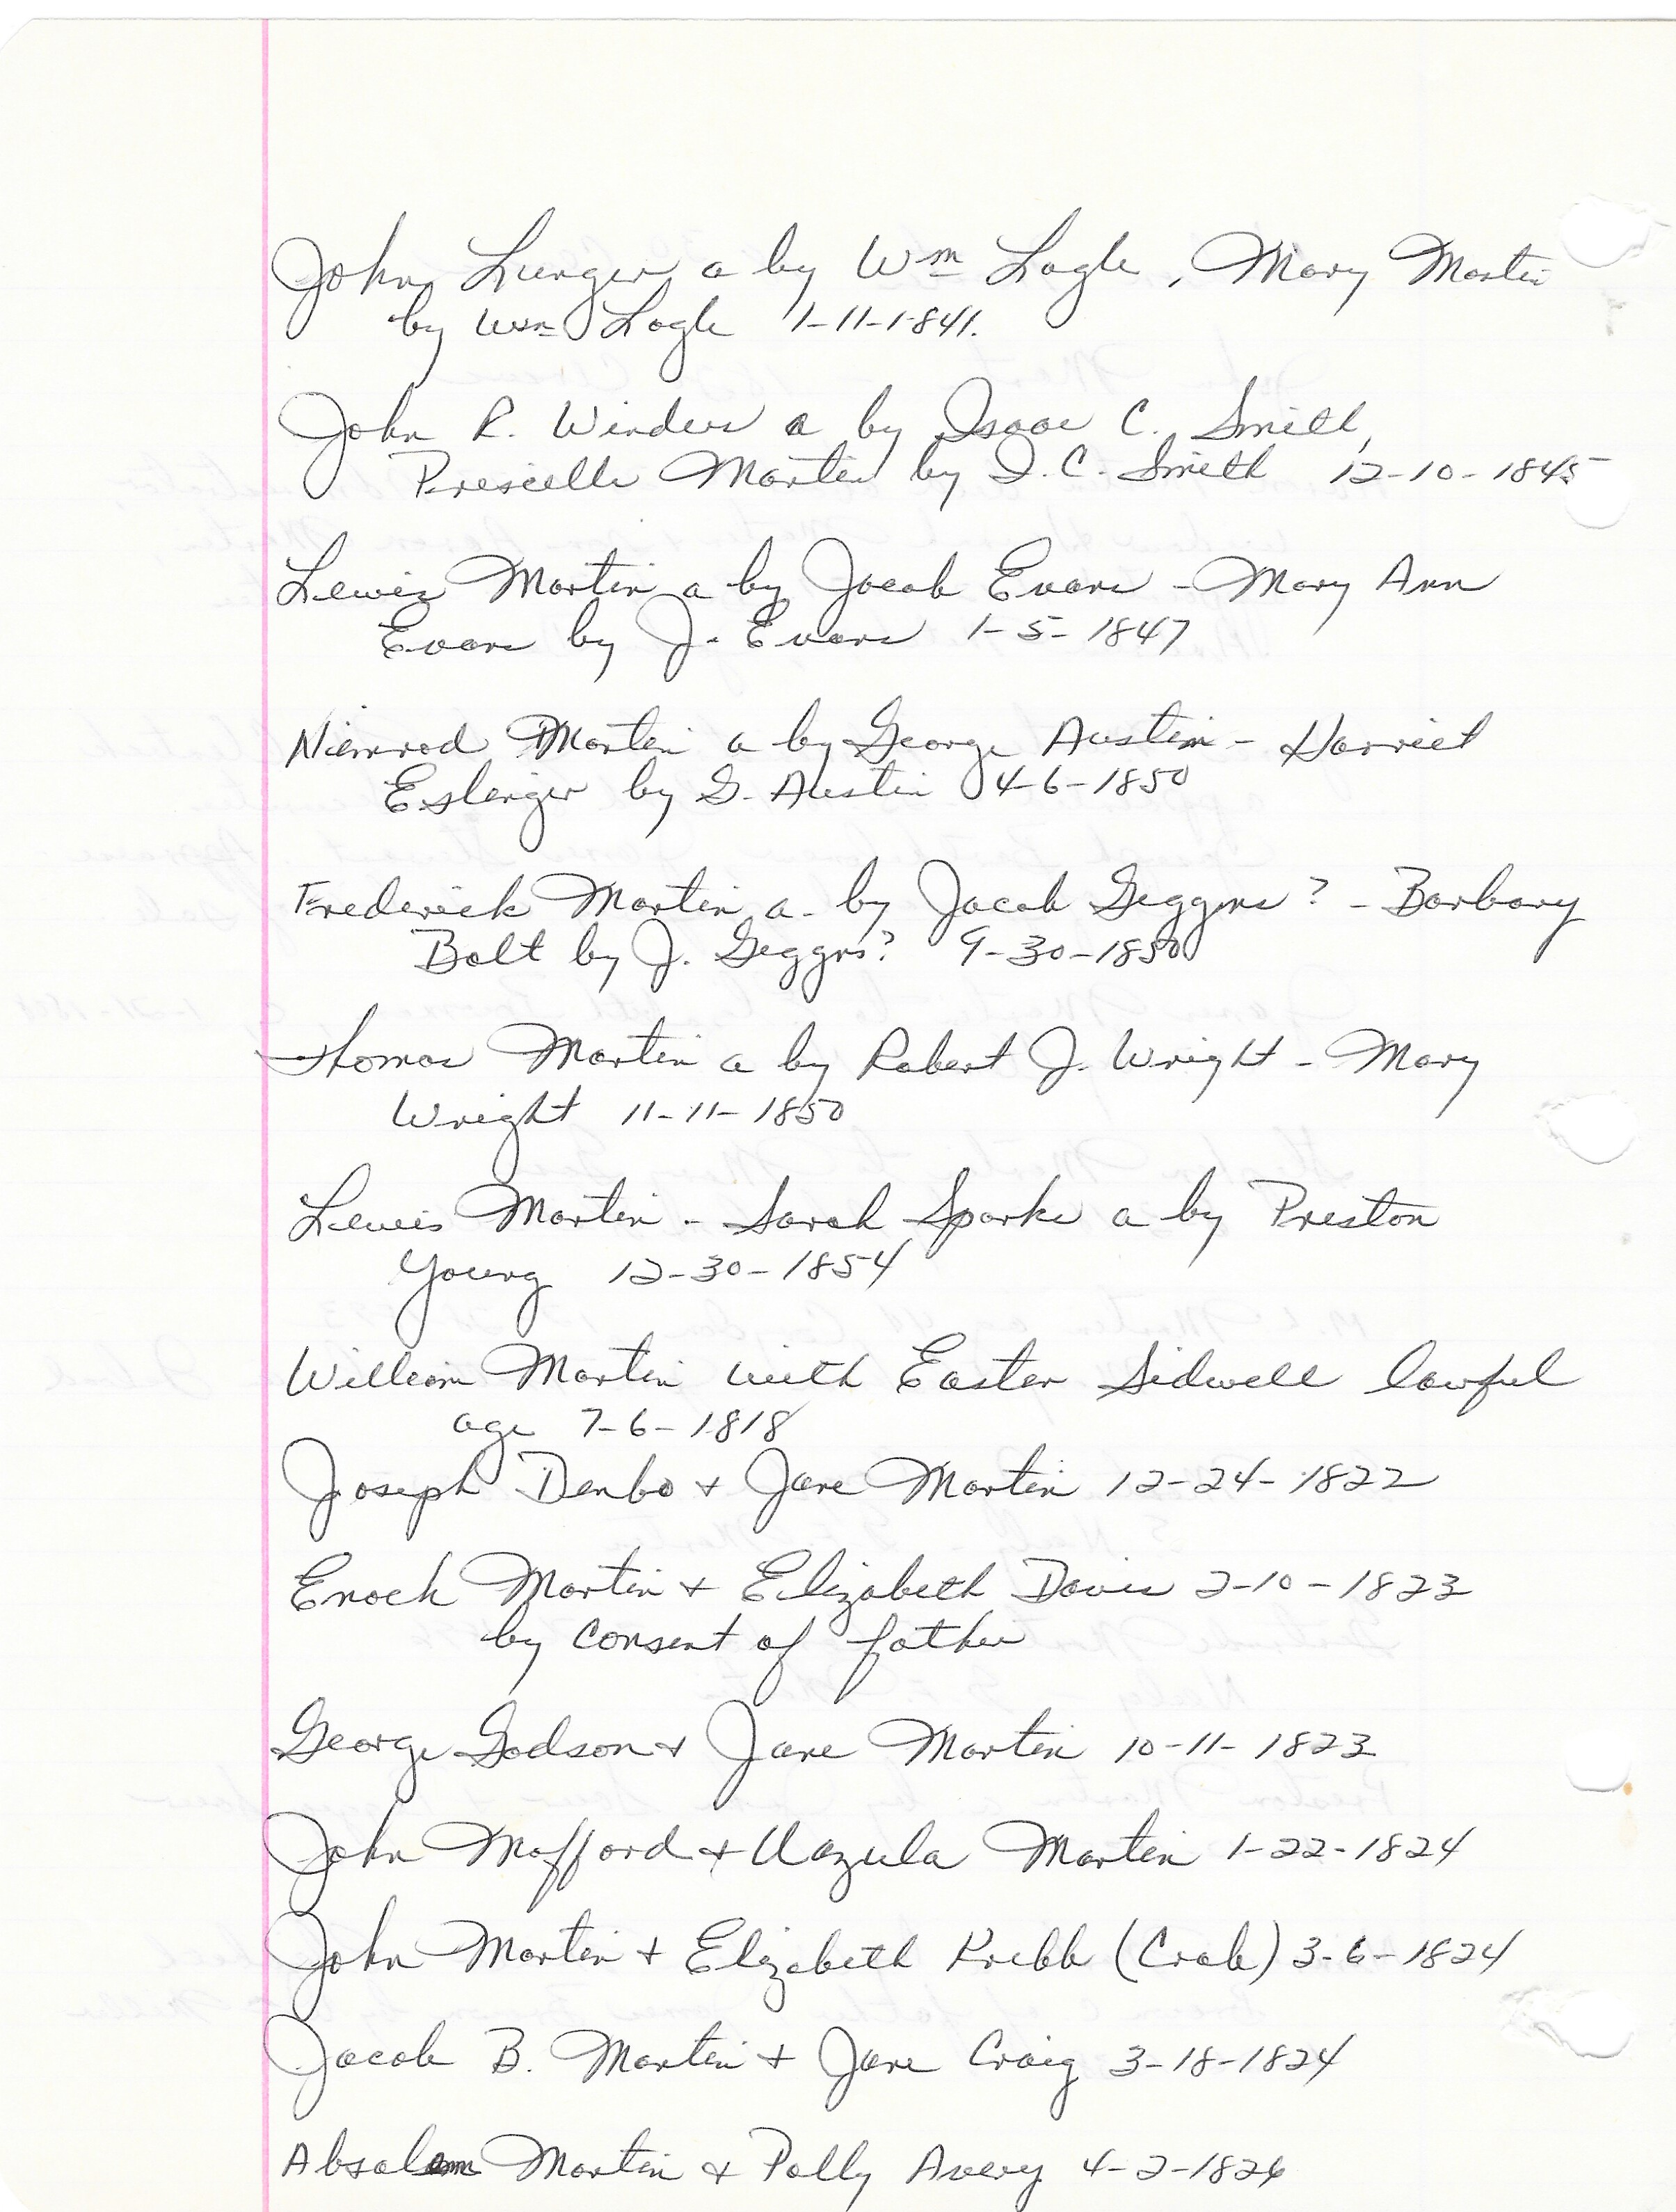 John Lunger a by Wm Logle, Mary Martin
by Wm Logle 1-11-1841.
John R. Winders a by Isaac C. Smith,
Prescilla Martin by I. C. Smith 12-10-1845
Lewis Martin a by Jacob Evans - Mary Ann
Evans by J. Evans 1-5-1847
Niemrod Martin a by George Austin - Harriet
Eslinger by G. Austin 4-6-1850
Frederick Martin a. by Jacob Geggns? - Barbary
Bolt by J. Geggns? 9-30-1850
Thomas Martin a by Robert J. Wright - Mary
Wright 11-11-1850
Lewis Martin - Sarah Sparks a by Preston
Young 12-30-1854
William Martin with Easter Sidwell lawful
age 7-6-1818
Joseph Denbo + Jane Martin 12-24-1822
Enoch Martin + Elizabeth Davis 2-10-1823
by consent of father
George Godson + Jane Martin 10-11-1823
John Mofford + Uazula Martin 1-22-1824
John Martin + Elizabeth Kribb (Crab) 3-6-1824
Jacob B. Martin + Jane Craig 3-18-1824
Absalom Martin & Polly Avery 4-2-1826